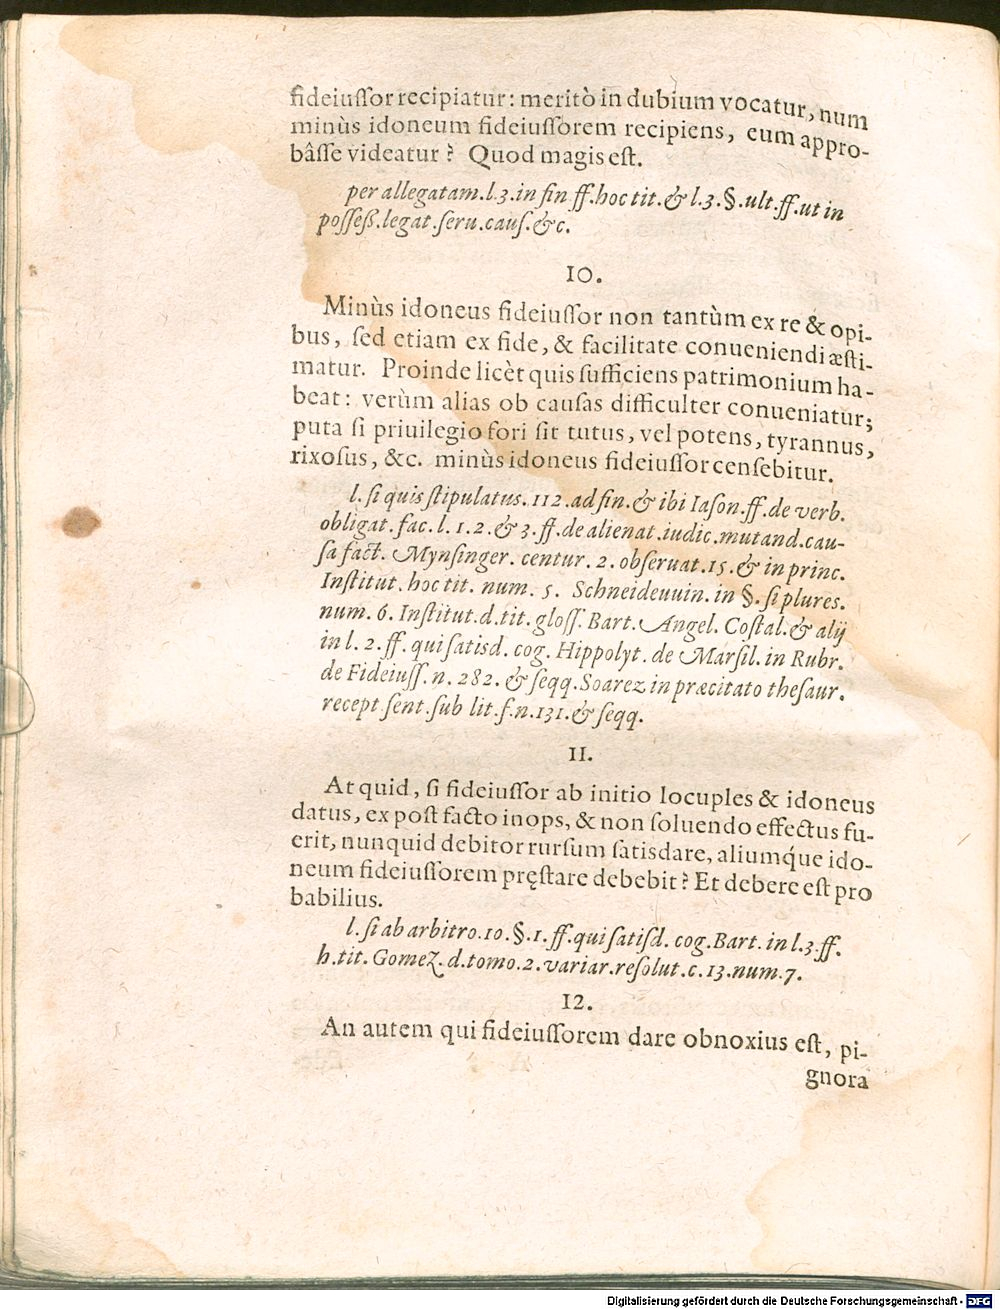 fideiuſſor recipiatur: meritò in dubium vocatur, num
minùs idoneum fideiuſſorem recipiens, eum appro-
bâſſe videatur? Quod magis eſt.
per allegatam. l. 3. in fin ff. hoc tit. & l. 3. §. ult. ff. ut in
poſſeß. legat. ſeru. cauſ. &c.
10.
Minùs idoneus fideiuſſor non tantùm ex re & opi-
bus, ſed etiam ex fide, & facilitate conueniendi æſti-
matur. Proinde licèt quis ſufficiens patrimonium ha-
beat: verùm alias ob cauſas difficulter conueniatur;
puta ſi priuilegio fori ſit tutus, vel potens, tyrannus,
rixoſus, &c. minùs idoneus fideiuſſor cenſebitur.
l. ſi quis ſtipulatus. 112. ad fin. & ibi Iaſon. ff. de verb.
obligat. fac. l. 1. 2. & 3. ff. de alienat. iudic. mutand. cau-
ſa fact. Mynſinger. centur. 2. obſeruat. 15. & in princ.
Inſtitut. hoc tit. num. 5. Schneideuuin. in §. ſi plures.
num. 6. Inſtitut. d. tit. gloſſ. Bart. Angel. Coſtal. & alij
in l. 2. ff. qui ſatisd. cog. Hippolyt. de Marſil. in Rubr.
de Fideiuſſ. n. 282. & ſeqq. Soarez in præcitato theſaur.
recept ſent. ſub lit. f. n. 131. & ſeqq.
11.
At quid, ſi fideiuſſor ab initio locuples & idoneus
datus, ex poſt facto inops, & non ſoluendo effectus fu-
erit, nunquid debitor rurſum ſatisdare, aliumq́ue ido-
neum fideiuſſorem pręſtare debebit? Et debere eſt pro
babilius.
l. ſi ab arbitro. 10. §. 1. ff. qui ſatiſd. cog. Bart. in l. 3. ff.
h. tit. Gomez. d. tomo. 2. variar. reſolut. c. 13. num. 7.
12.
An autem qui fideiuſſorem dare obnoxius eſt, pi-
gnora
Digitalisierung gefördert durch die Deutsche Forschungsgemeinschaft - DFG